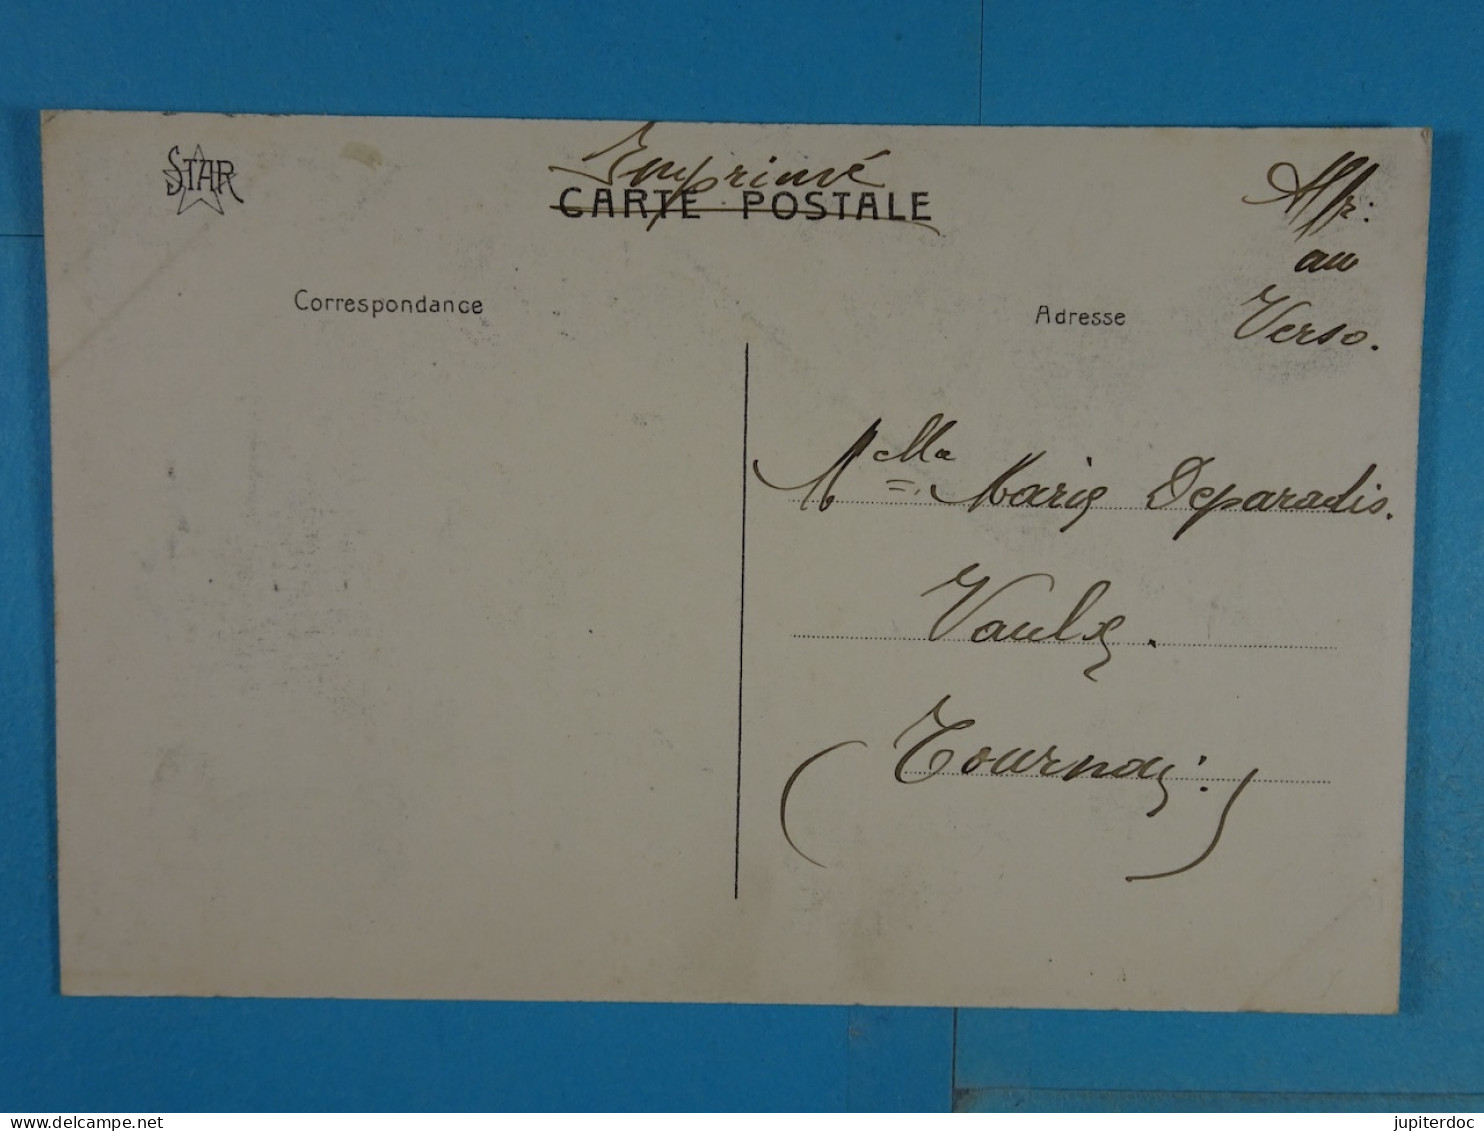 STAR
Imprimé
CARTE POSTALE
Affr:
au
Verso.
Correspondance
Adresse
Melle Marie Deparadis.
Vaulx.
(Tournay:)
delcampe.net
jupiterdoc